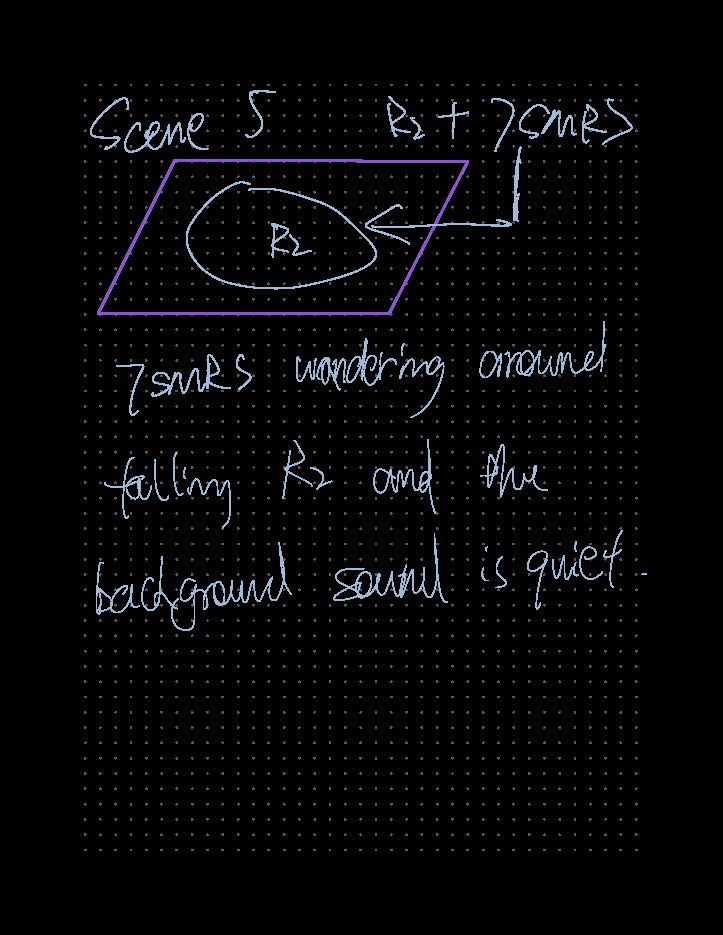 Scene 5 R2 + 7 SMRS
R2
7 SMRS wandering around
falling R2 and the
background sound is quiet.